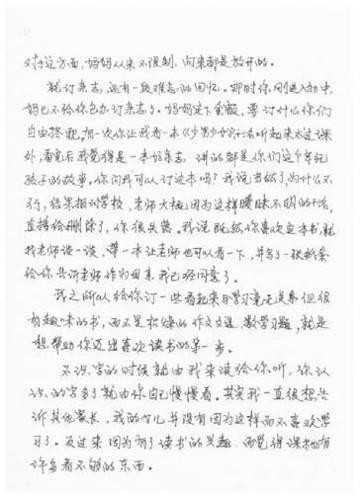 对于这方面,妈妈从来不限制,向来都是放开的。
就订杂志,还有一段难忘的回忆。那时你刚进入初中,
妈已不给你包办订杂志了。妈妈定下金额,要订什么你们
自由搭配,有一次你让我看一本《少男少女》听起来太过课
外,看完后我觉得是一本好杂志,讲的都是你们这个年纪
孩子的故事。你问我可以订这本吗?我说当然了,为什么不
行,结果报到学校,老师大概因为这样暧昧不明的书名,
直接给删除了,你很失落。我说既然你喜欢这本书,就
找老师谈一谈,带一本让老师也可以看一下,并写了一张纸条
给你告诉老师作为母亲我已经同意了。
我之所以给你订一些看起来与学习毫无关系但很
有趣味的书,而不是枯燥的作文文选、数学习题,就是
想帮助你迈出喜欢读书的第一步。
不识字的时候就由我来读给你听,你认
识的字多了就由你自己慢慢看。其实我一直很想告
诉其他家长,我的女儿并没有因为这样而不喜欢学
习了。反过来因为有了读书的兴趣,而觉得课本也有
许多看不够的东西。